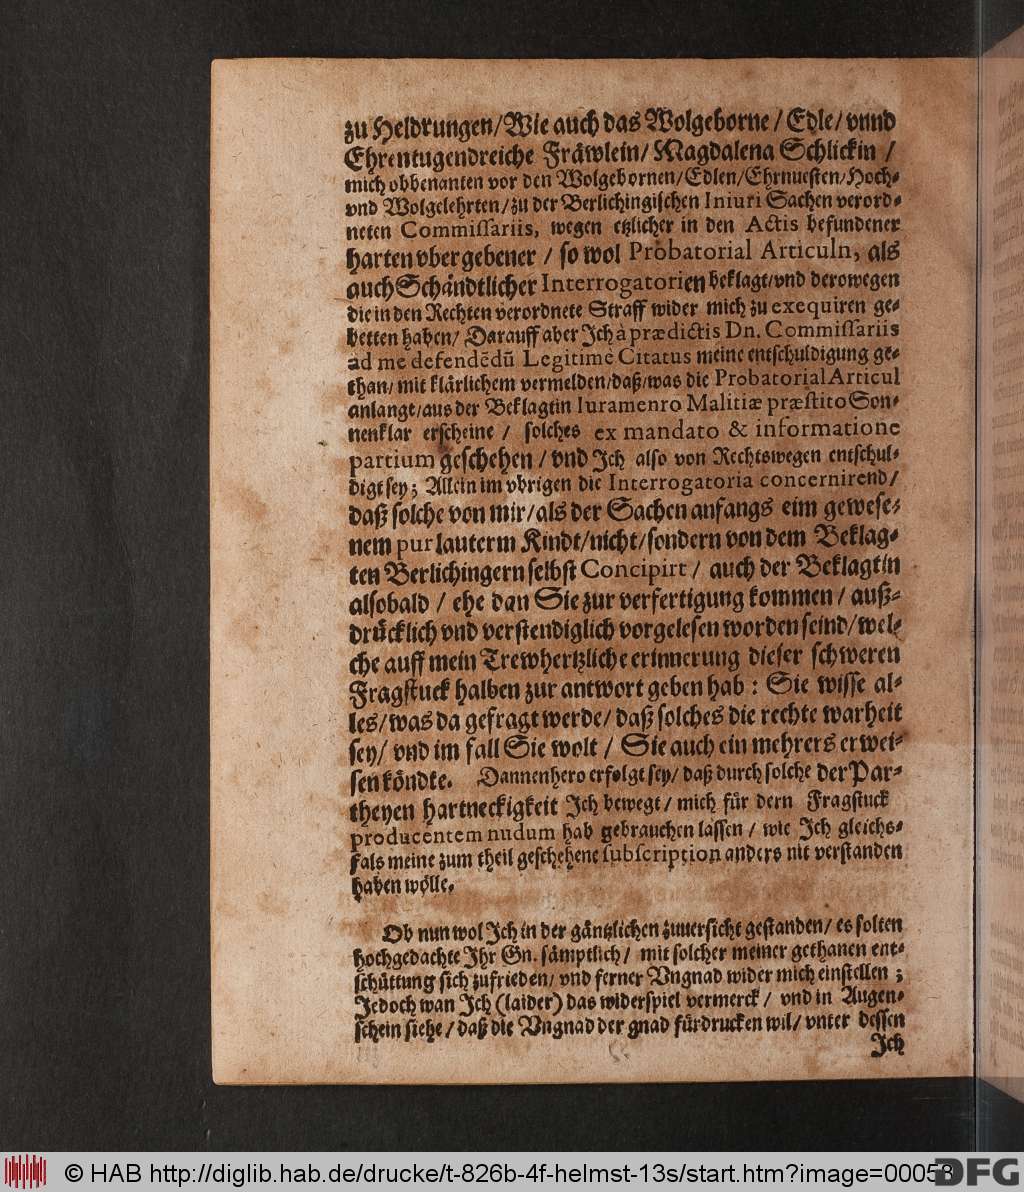 zu Heldrungen/Wie auch das Wolgeborne/ Edle/ vnnd
Ehrentugendreiche Fräwlein/ Magdalena Schlickin /
mich obbenanten vor den Wolgebornen/Edlen/Ehrnuesten/Hoch-
vnd Wolgelehrten/zu der Berlichingischen Iniuri Sachen verord-
neten Commiſſariis, wegen etzlicher in den Actis befundener
harten vbergebener / so wol Probatorial Articuln, als
auch Schändtlicher Interrogatorien beklagt/vnd derowegen
die in den Rechten verordnete Straff wider mich zu exequiren ge-
betten haben/ Darauff aber Ich à prædictis Dn. Commiſſariis
ad me defendēdū Legitimè Citatus meine entschuldigung ge-
than/ mit klärlichem vermelden/daß/was die Probatorial Articul
anlangt/aus der Beklagtin Iuramenro Malitiæ præſtito Son-
nenklar erscheine / solches ex mandato & informatione
partium geschehen / vnd Ich also von Rechtswegen entschul-
digt sey; Allein im vbrigen die Interrogatoria concernirend/
daß solche von mir/als der Sachen anfangs eim gewese-
nem pur lauterm Kindt/nicht/sondern von dem Beklag-
ten Berlichingern selbst Concipirt / auch der Beklagtin
alsobald / ehe dan Sie zur verfertigung kommen / auß-
drücklich vnd verstendiglich vorgelesen worden seind/wel-
che auff mein Trewhertzliche erinnerung dieser schweren
Fragstuck halben zur antwort geben hab : Sie wisse al-
les/was da gefragt werde/ daß solches die rechte warheit
sey/ vnd im fall Sie wolt / Sie auch ein mehrers erwei-
sen köndte. Dannenhero erfolgt sey/ daß durch solche der Par-
theyen hartneckigkeit Ich bewegt/ mich für dern Fragstuck
producentem nudum hab gebrauchen lassen / wie Ich gleichs-
fals meine zum theil geschehene ſubſcription anders nit verstanden
haben wölle.
Ob nun wol Ich in der gäntzlichen zuuersicht gestanden/ es solten
hochgedachte Ihr Gn. sämptlich/ mit solcher meiner gethanen ent-
schüttung sich zufrieden/ vnd ferner Vngnad wider mich einstellen ;
Jedoch wan Ich (laider) das widerspiel vermerck / vnd in Augen-
schein siehe/ daß die Vngnad der gnad fürdrucken wil/ vnter dessen
Ich
© HAB http://diglib.hab.de/drucke/t-826b-4f-helmst-13s/start.htm?image=00058
DFG